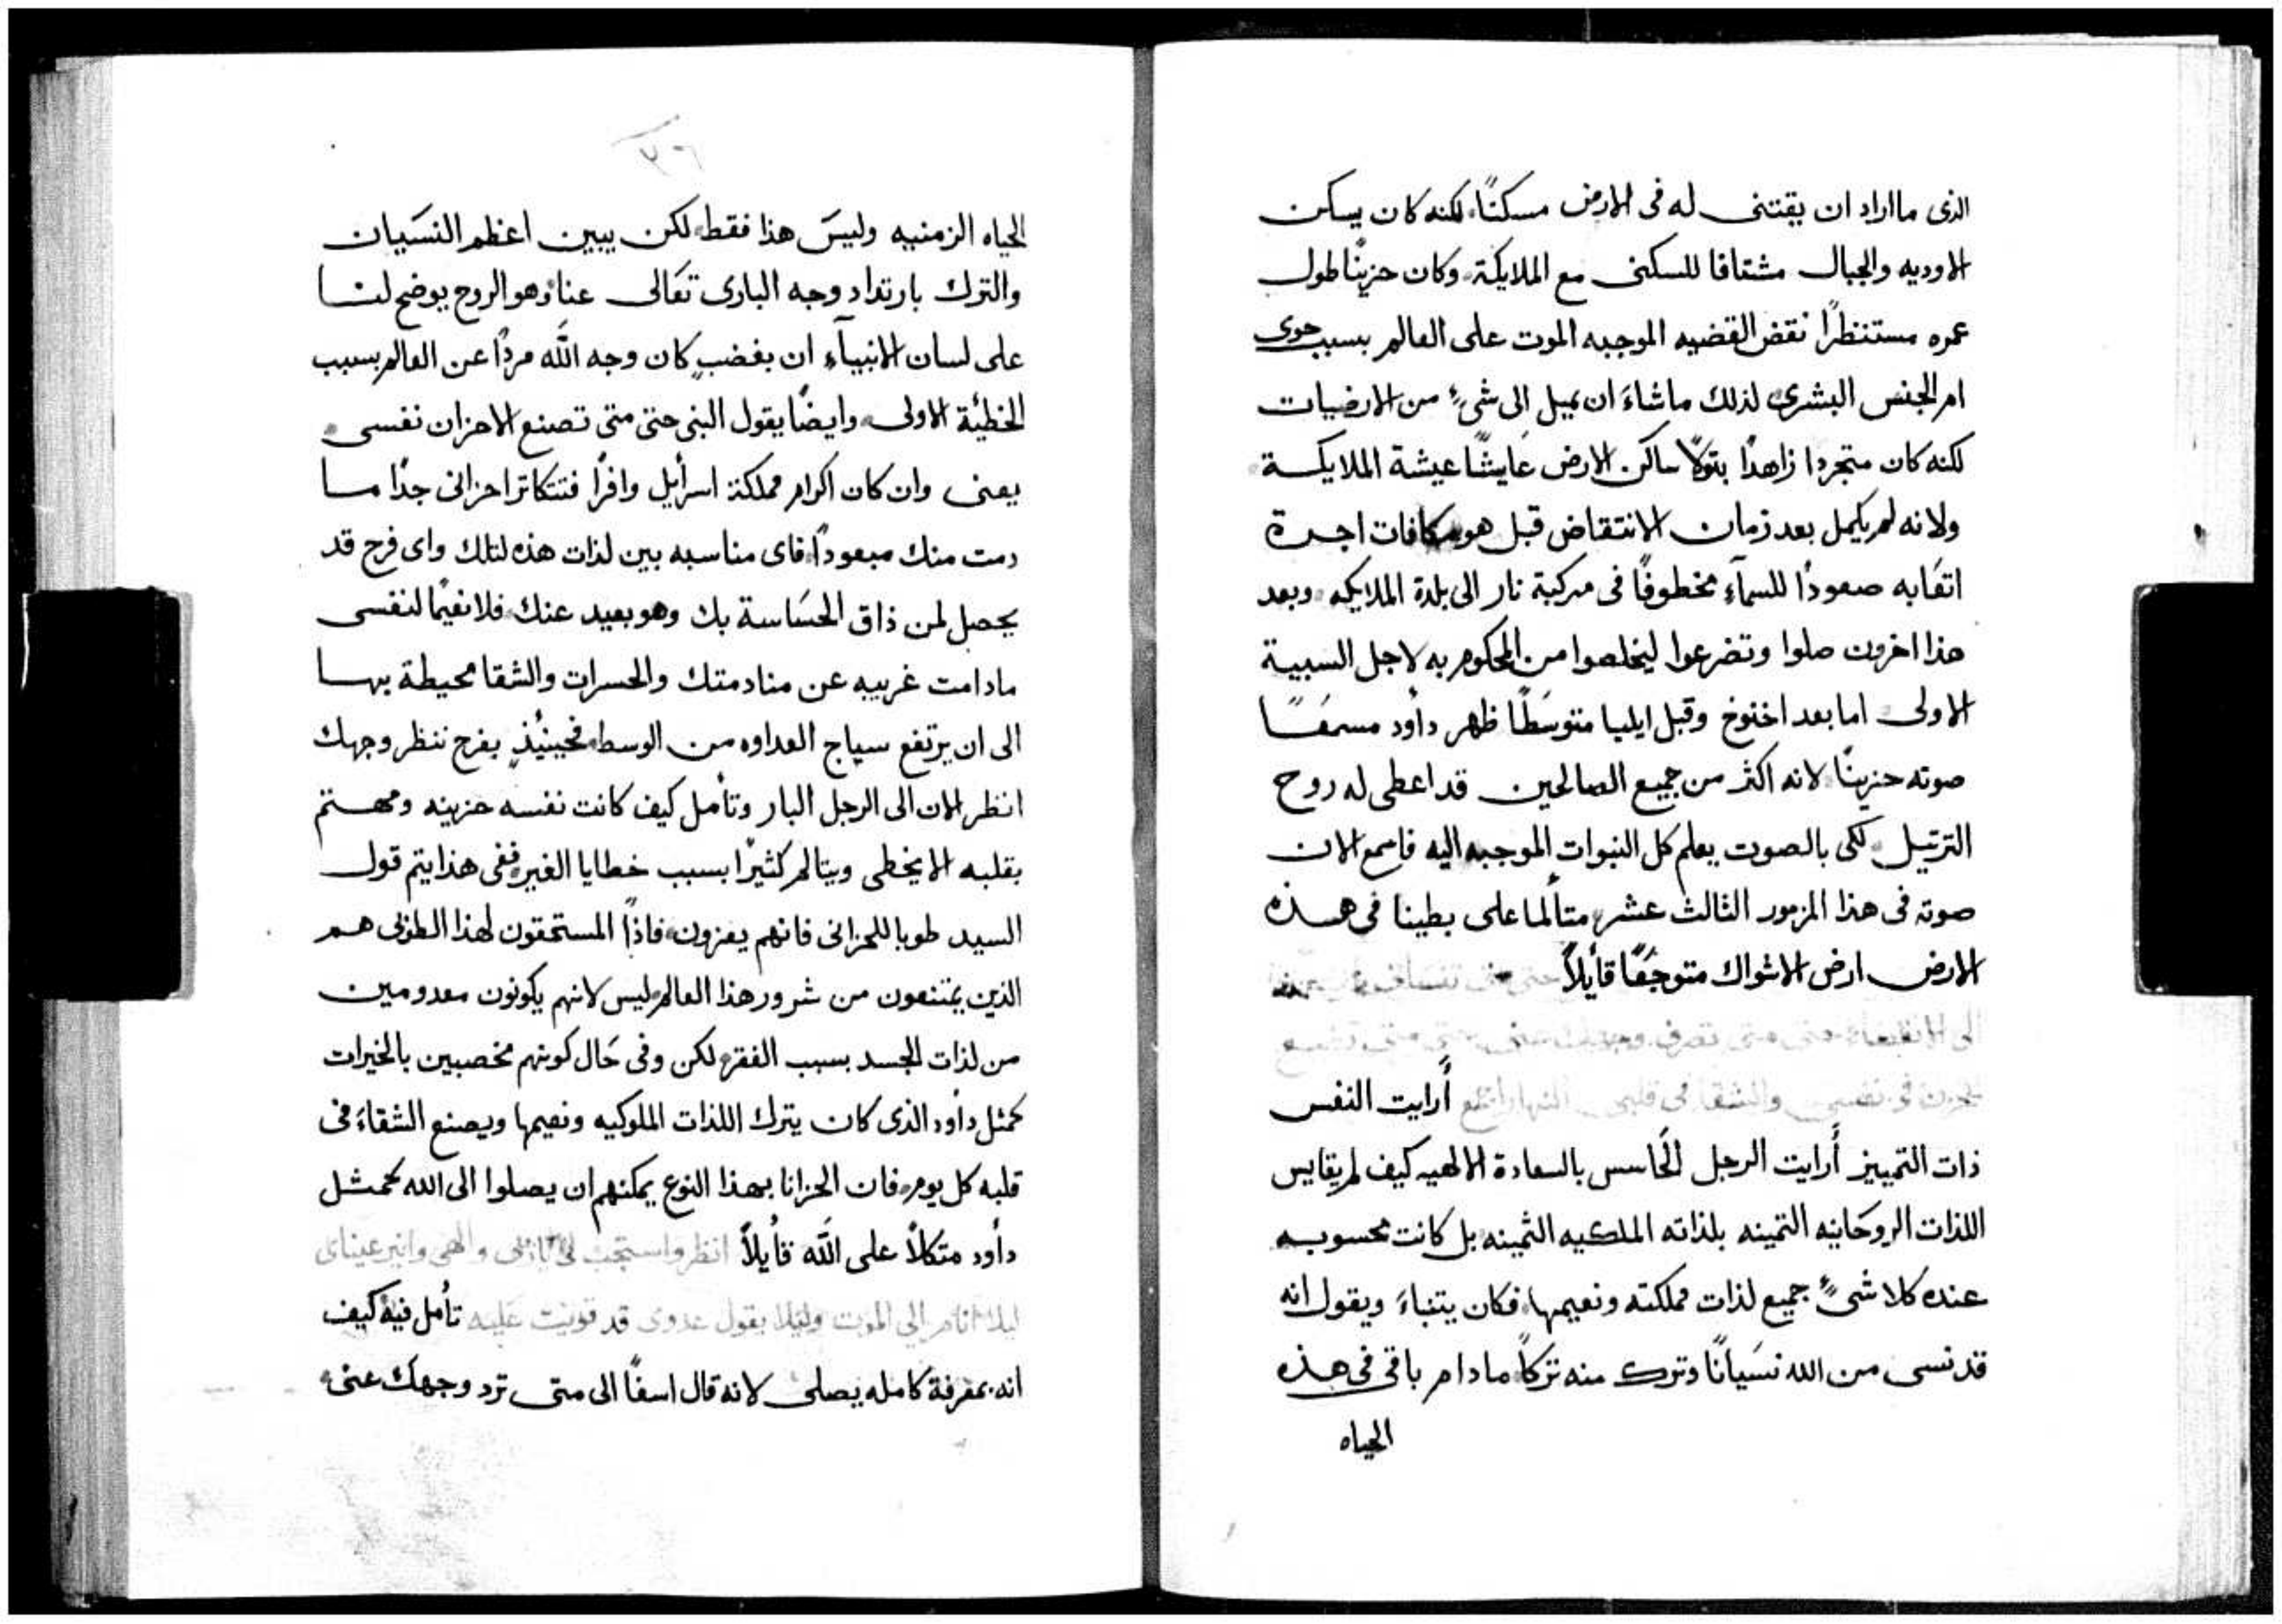 الذى مااراد ان يقتنى له فى الارض مسكنًا لكنه كان يسكن
الاوديه والجبال مشتاقا للسكنى مع الملايكة وكان حزينًا طول
عمره مستنظرًا نقض القضيه الموجبه الموت على العالم بسبب حوى
ام الجنس البشرى لذلك ماشاءَ ان يميل الى شىءٍ من الارضيات
لكنه كان متجردا زاهدًا بتولًا ساكن الارض عايشًا عيشة الملايكة
ولانه لم يكمل بعد زمان الانتقاض قبل هو مكافات اجرة
اتعابه صعودًا للسمآءِ مخطوفًا فى مركبة نار الى بلدة الملايكه وبعد
هذا اخرون صلوا وتضرعوا ليخلصوا من المحكوم به لاجل السبية
الاولى اما بعد اخنوخ وقبل ايليا متوسَطًا ظهر داود مسمعًا
صوته حزينًا لانه اكثر من جميع الصالحين قد اعطى له روح
الترتيل لكى بالصوت يعلم كل النبوات الموجبه اليه فاسمع الان
صوته فى هذا المزمور الثالث عشر متألما على بطينا فى هذه
الارض ارض الاشواك متوجعًا قأيلاً حتى متى
الى الانقضاء حتى متى تصرف وجهك عنى حتى متى تضع
الحزن فى نفسى والشقا فى قلبى النهار اجمع أَرايت النفس
ذات التمييز أَرايت الرجل الحَاسس بالسعادة الالهيه كيف لم يقايس
اللذات الروحَانيه الثمينه بلذاته الملكيه الثمينه بل كانت محسوبه
عنده كلا شىءٍ جميع لذات مملكته ونعيمها فكان يتنباءَ ويقول انه
قد نسى من الله نسَيانًا وترك منه تركًا مادام باقى فى هذه
الحياه
٣٦
الحياه الزمنيه وليسَ هذا فقط لكن يبين اعظم النسَيان
والترك بارتداد وجه البارى تعَالى عنا وهو الروح يوضح لنا
على لسان الانبيآءِ ان بغضبٍ كان وجه اللَّه مردًا عن العالم بسبب
الخطئة الاولى وايضًا يقول النبى حتى متى تصنع الاحزان نفسى
يعنى وان كان اكرام مملكة اسرأيل وافرًا فتتكاتر احزانى جدًا ما
دمت منك مبعودًا فاى مناسبه بين لذات هذه لتلك واى فرح قد
يحصل لمن ذاق الحسَاسة بك وهو بعيد عنك فلا نعيمًا لنفسى
مادامت غريبه عن منادمتك والحسرات والشقا محيطة بها
الى ان يرتفع سياج العداوه من الوسط فحينيُذٍ بفرح ننظر وجهك
انظر الان الى الرجل البار وتأمل كيف كانت نفسه حزينه ومهتم
بقلبه الا يخطى ويتالم كثيرًا بسبب خطايا الغير ففى هذا يتم قول
السيد طوبا للحزانى فانهم يعزون فاذًا المستحقون لهذا الطوبى هم
الذين يمتنعون من شرور هذا العالم ليس لانهم يكونون معدومين
من لذات الجسد بسبب الفقر لكن وفى حَال كونهم مخصبين بالخيرات
كمثل داود الذى كان يترك اللذات الملوكيه ونعيمها ويصنع الشقاءَ فى
قلبه كل يوم فان الحزانا بهذا النوع يمكنهم ان يصلوا الى الله كمثل
دأود متكلاً على اللَّه قأيلاً انظر واستجب لى يا ربى والهى وانير عيناى
ليلا انام الى الموت وليلا يقول عدوى قد قويت عليه تأمل فيه كيف
انه بمعرفة كامله يصلى لانه قال اسفًا الى متى ترد وجهك عنى